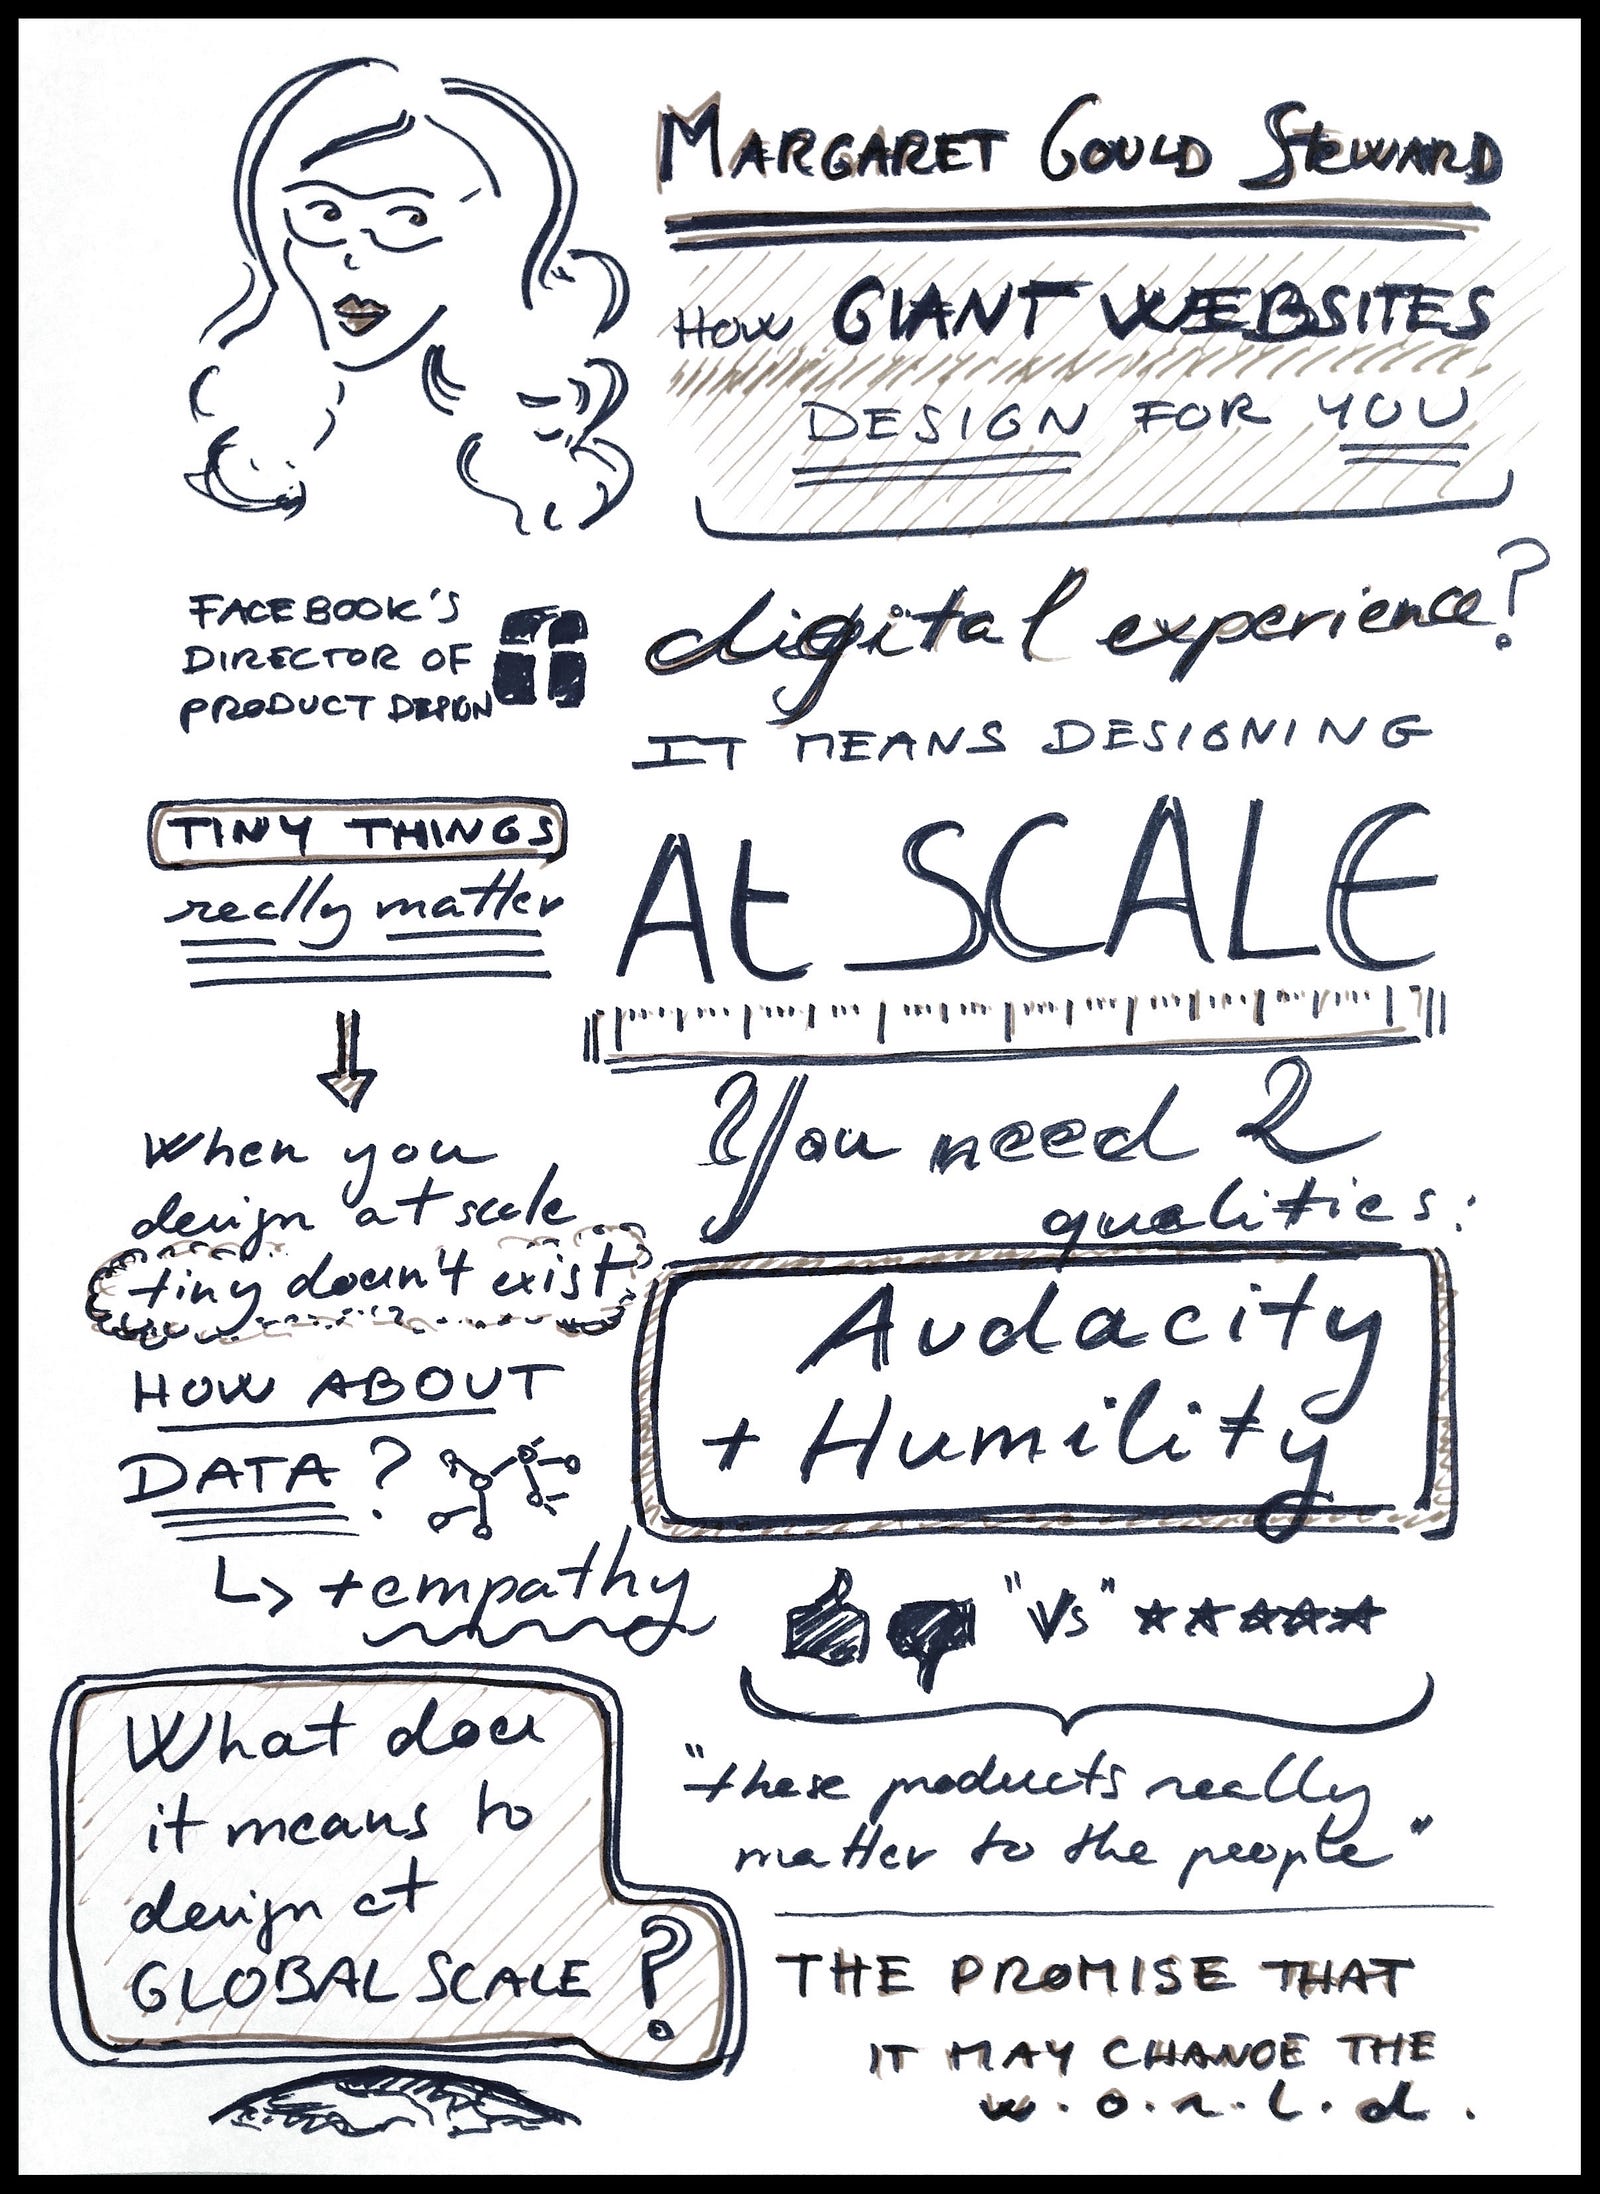 MARGARET GOULD STEWARD
HOW GIANT WEBSITES
DESIGN FOR YOU
FACEBOOK'S
DIRECTOR OF
PRODUCT DESIGN
digital experience?
IT MEANS DESIGNING
At SCALE
TINY THINGS
really matter
When you
design at scale
tiny doesn't exist
HOW ABOUT
DATA?
+empathy
You need 2
qualities:
Audacity
+ Humility
"Vs" ★★★★★
"these products really
matter to the people"
What does
it means to
design at
GLOBAL SCALE ?
THE PROMISE THAT
IT MAY CHANGE THE
w.o.r.l.d.